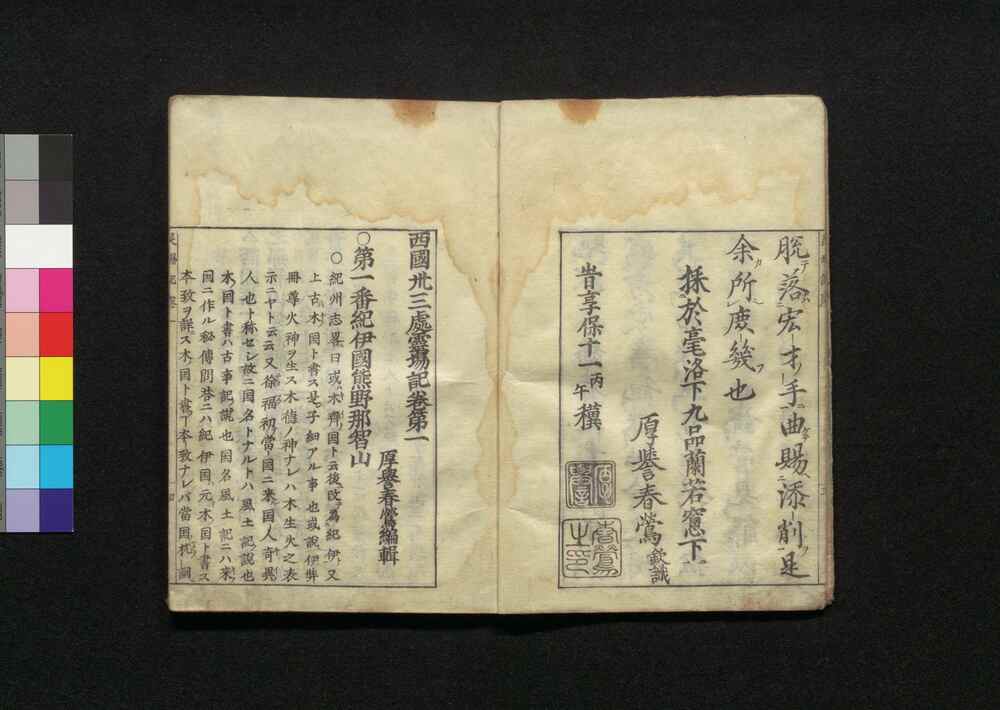 脱落宏才手曲賜添削足
余所庶幾也
採於毫洛下九品蘭若窓下
厚譽春鶯欽識
旹享保十一丙午襀
西國卅三處靈場記卷第一
厚譽春鶯編輯
○第一番紀伊國熊野那智山
○紀州志畧曰或木齊国ト云後改爲紀伊又
上古木国ト書ス是子細アル事也或説伊弉
冊尊火神ヲ生ス木德ノ神ナレハ木生火之表
示ニヤト云云又徐福初當国ニ来国人奇異
人也ト称セシ故ニ国名トナルトハ風土記説也
木国ト書ハ古事記説也国名風土記ニハ来
国ニ作ル秘傳問荅ニハ紀伊国元木国ト書ス
本致ヲ詳ス木国ト書ー本致ナレバ當国